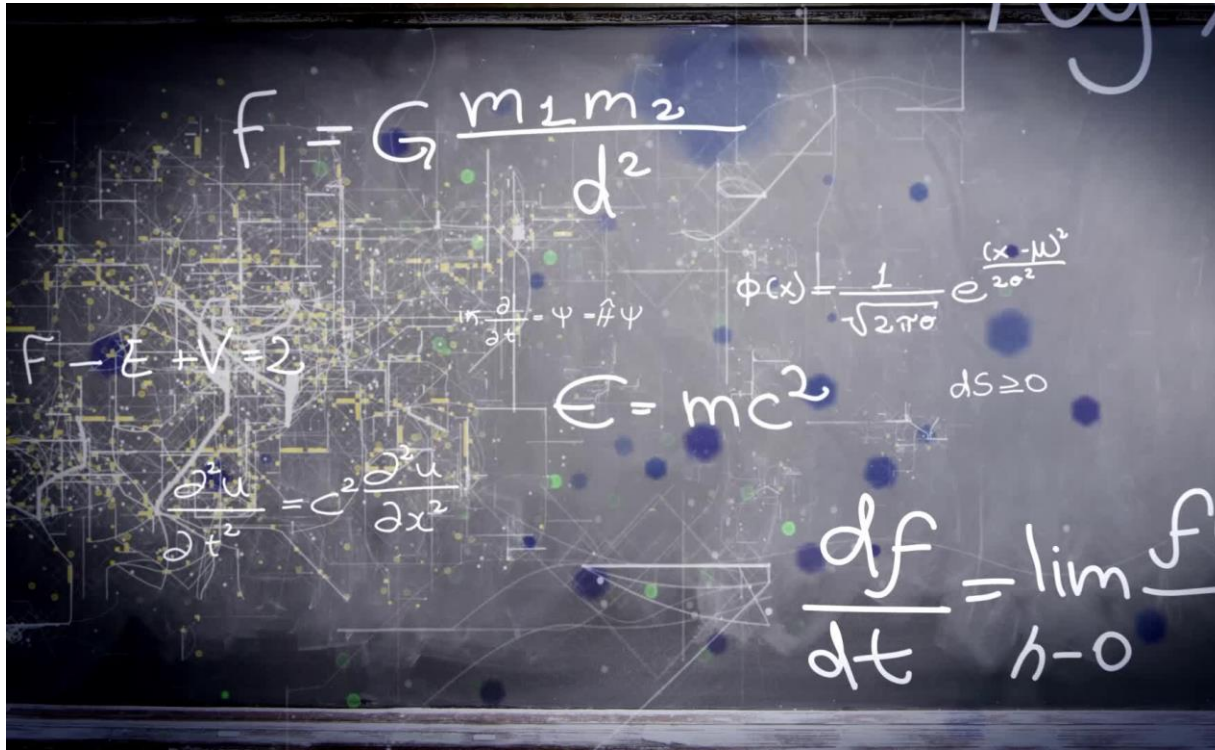 F = G m1m2 / d²
ϕ(x) = 1 / √2πσ e (x-μ)² / 2σ²
iħ ∂/∂t = Ψ = Ĥ Ψ
F - E + V = 2
E = mc²
dS ≥ 0
∂²u / ∂t² = c² ∂²u / ∂x²
df / dt = lim h-0 f